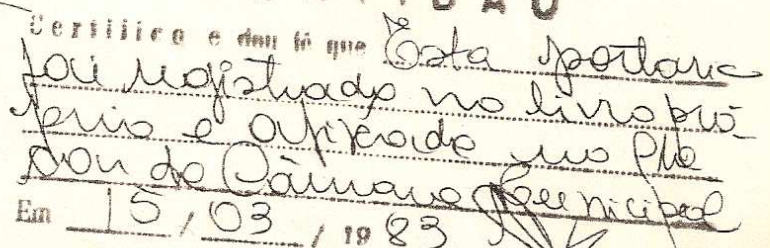 IDAO
Certifico e dou fé que Esta portaria
foi registrado no livro pró-
prio e afixado no Pla
da Câmara Municipal
Em 15 / 03 / 1983